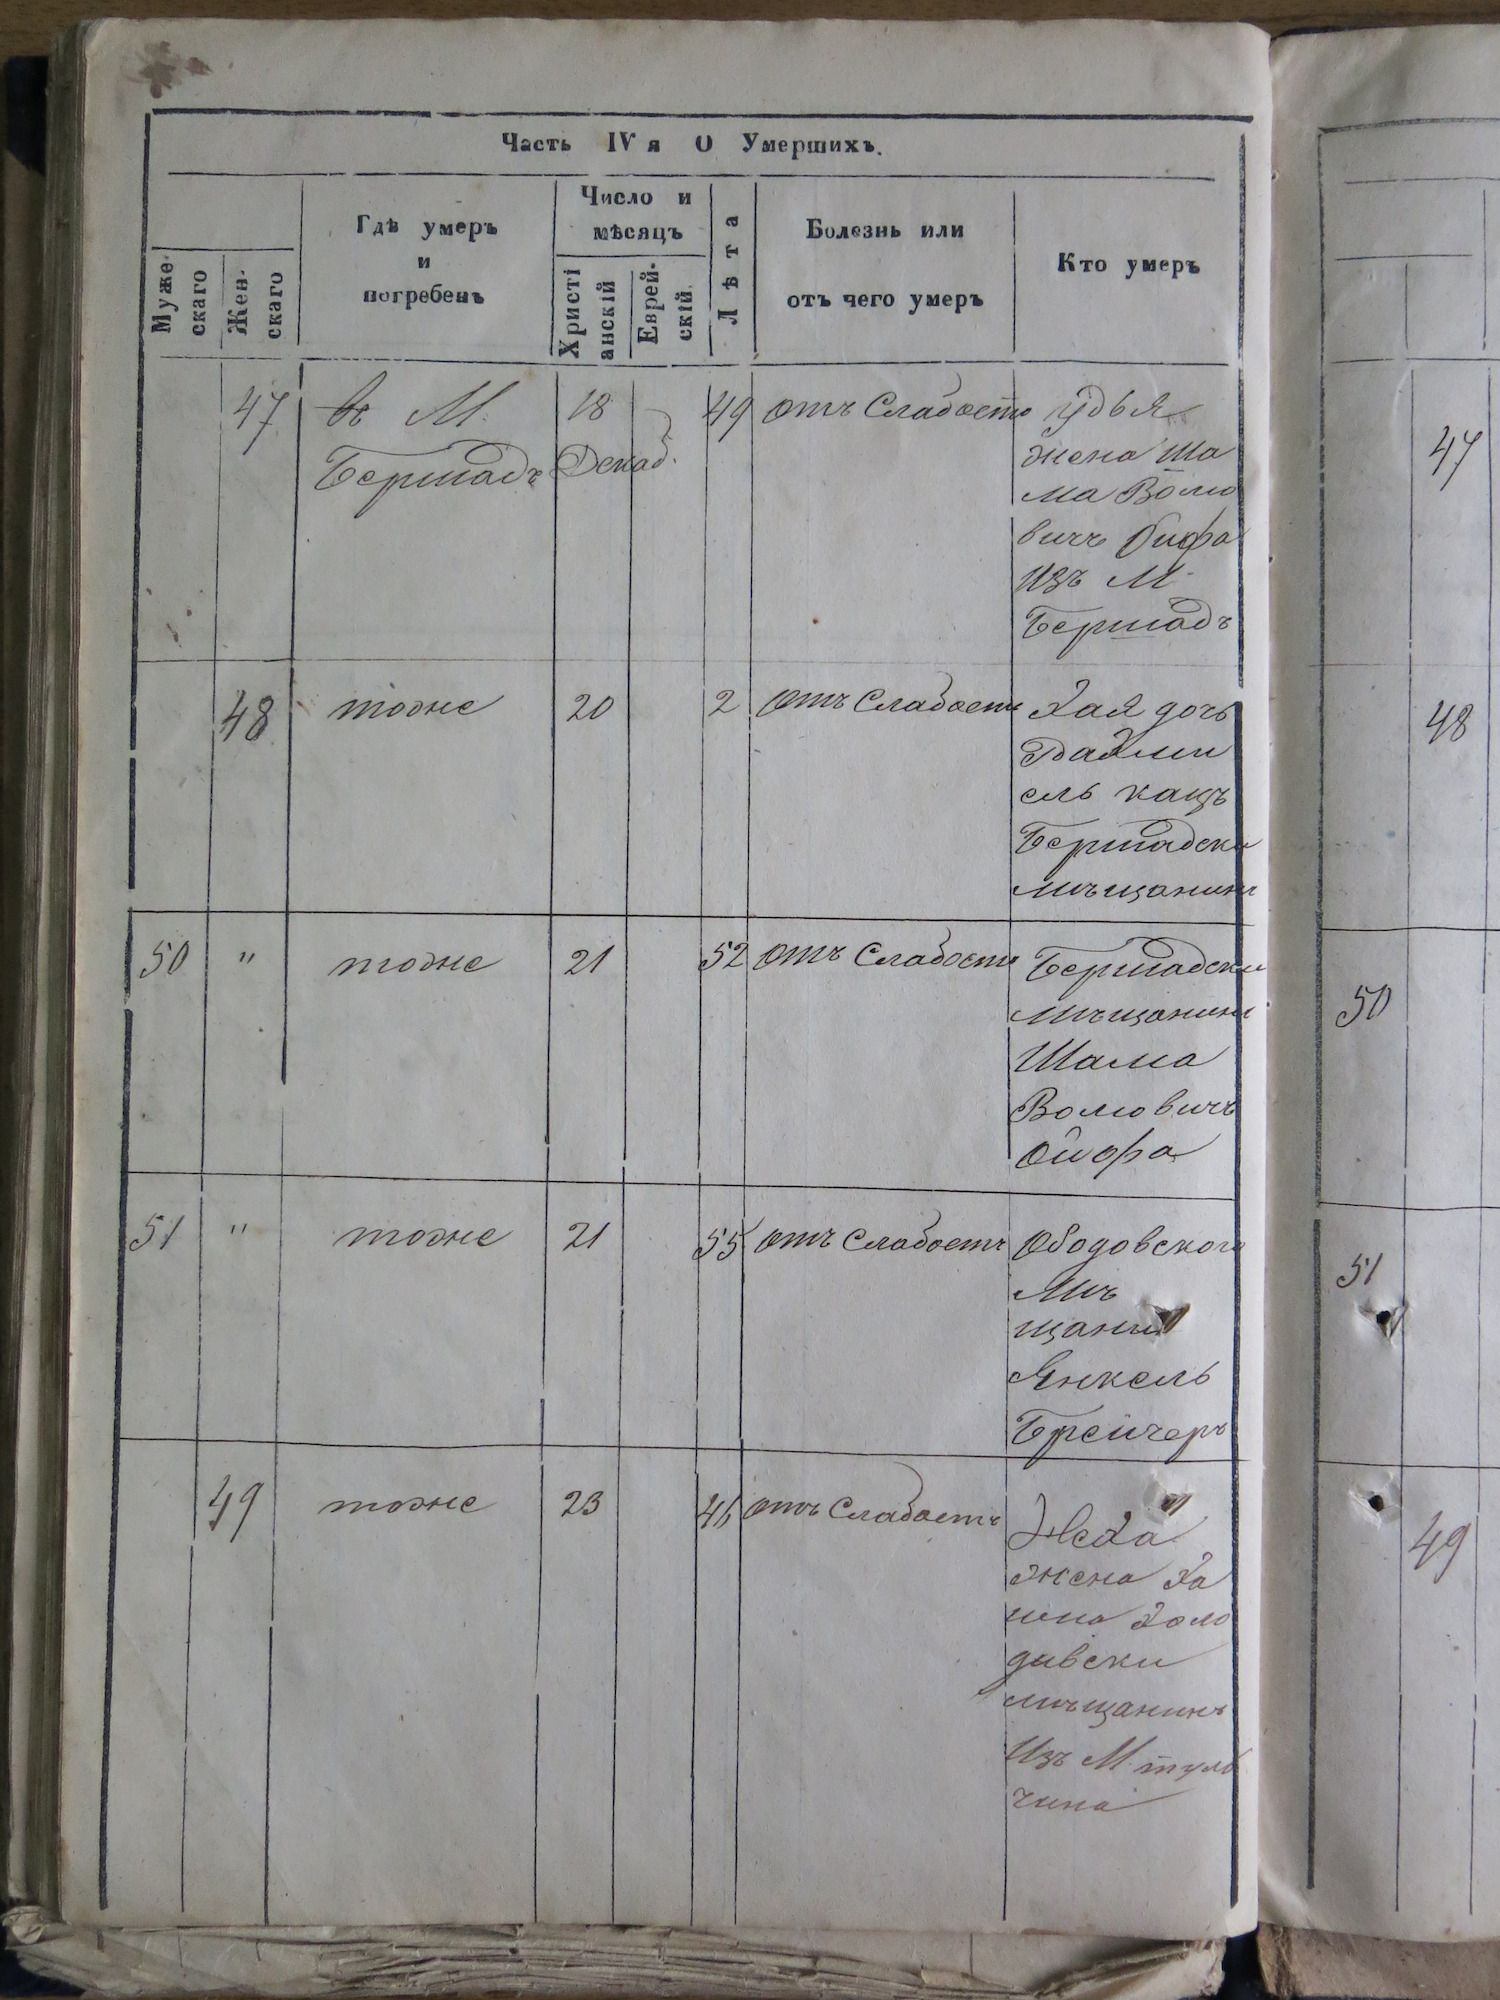 Часть IV я О Умершихъ.
Муже-
скаго
Жен-
скаго
Гдѣ умеръ
и
погребенъ
Число и
мѣсяцъ
Христі
анскій
Еврей-
скій
Лѣта
Болезнь или
отъ чего умеръ
Кто умеръ
47 въ М. 18 49 отъ Слабости
Бершадъ Декаб.
жена Ша
ма Волю
вичъ
изъ М.
Бершадъ
48 тоже 20 2 отъ Слабости Хая дочь
ель кацъ
Бершадски
мѣщанинъ
50 " тоже 21 52 отъ Слабости Бершадски
мѣщанинъ
Шама
Волювичъ
Ойфра
51 " тоже 21 55 отъ Слабость Ободовского
мѣ
щанин
Янкель
Брейчеръ
49 тоже 23 отъ Слабость
жена Ха
има Холо
дивски
мѣщанинъ
изъ М. туль
чина
47
48
50
51
49